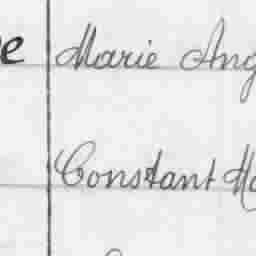 e Marie Ang
Constant Ma